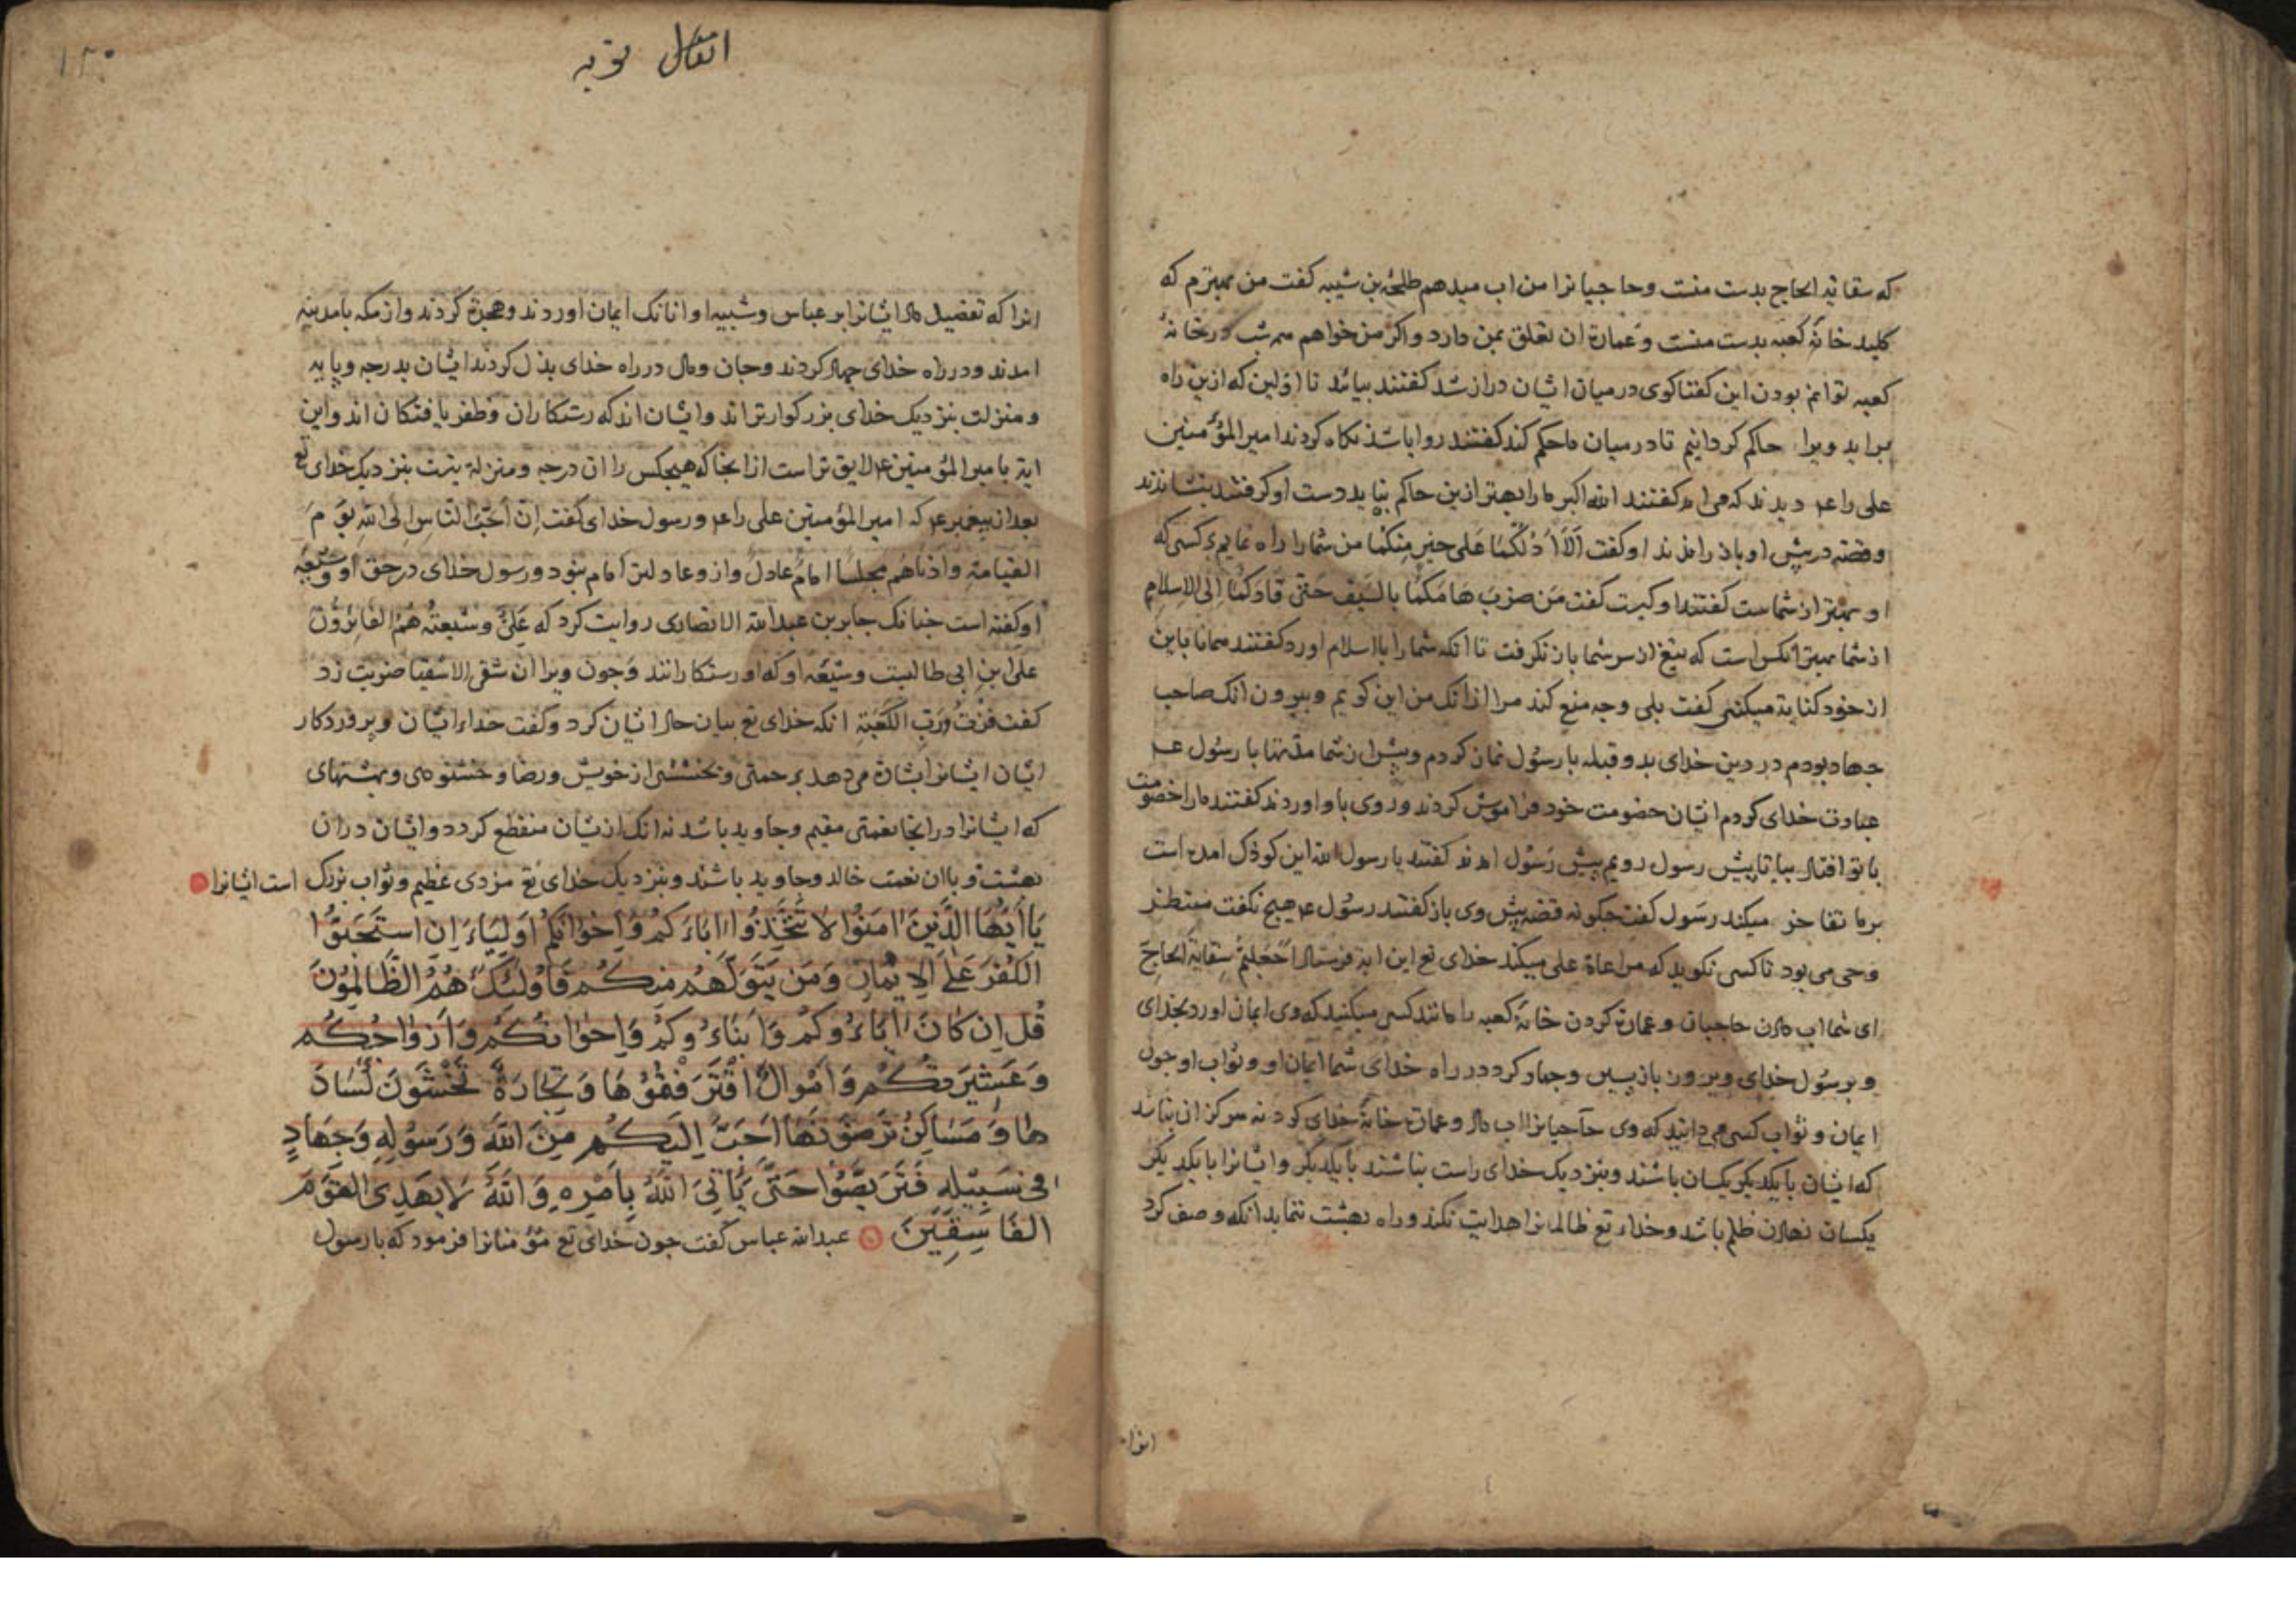 که سقایة الحاج بدست منست وحاجیانرا من اب میدهم طلحة بن شیبه کفت من بهترم که
کلید خانۀ کعبه بدست منست وعمارة ان تعلق بمن دارد واکر من خواهم همه شب در خانۀ
کعبه توانم بودن این کفتاکوی درمیان ایشان دراز شد کفتند بیائید تا اوّلین که ازین راه
براید ویرا حاکم کردانیم تا درمیان ما حکم کند کفتند روا باشد نکاه کردند امیرالمؤمنین
علی را عم دیدند که می امد کفتند الله اکبر ما را بهتر ازین حاکم نیاید دست او کرفتند بنشاندند
وقصّه درپیش او باز راندند او کفت اَلَا اَدُلُّکُمَا عَلی خیرٍ مِنکُمَا من شما را راه نمایم بر کسی که
او بهتر از شماست کفتند او کیست کفت مَن ضَرَبَ هَامَکُمَا بالسَیفِ حَتّی قَادَکُمَا اِلی الاِسلامِ
از شما بهتر انکس است که تیغ از سر شما باز نکرفت تا انکه شما را با اسلام اورد کفتند همانا باین
از خود کنایة میکنی کفت بلی وجه منع کند مرا ازانک من این کویم وبیرون انک صاحب
جهاد بودم در دین خدای بدو قبله با رسول نماز کردم وپیش از شما مدّتها با رسول عم
عبادت خدای کردم ایشان خصومت خود فراموش کردند وروی باو اوردند کفتند ما را خصومت
با تو افتاد بیا تا پیش رسول رویم پیش رَسُول امدند کفتند یا رسول الله این کوذک امده است
برما تفاخر میکند رسَول کفت جکونه قصّه پیش وی باز کفتند رسُول عم هیج نکفت منتظر
وحی می بود تا کسی نکوید که مراعاة علی میکند خدای تع این ایة فرستاد اَجَعَلتُم سِقایَةَ الحَاجّ
ای شما اب دادن حاجیان وعمارة کردن خانۀ کعبه را مانند کسی میکنید که وی ایمان اورد بخدای
وبرسُول خدای وبروز بازپسین وجهاد کرد در راه خدای شما ایمان او وثواب او جون
ایمان وثواب کسی می دانید که وی حاجیانرا اب داد وعمارة خانۀ خدای کرد نه هرکز ان نباشد
که ایشان با یکدیکر یکسان باشند وبنزدیک خدای راست نباشند با یکدیکر وایشانرا با یکدیکر
یکسان نهادن ظلم باشد وخداء تع ظالمانرا هدایت نکند وراه بهشت ننماید انکه وصف کرد
انرا
۱۳۰
انفال توبه
انرا که تفضیل داد ایشانرا بر عباس وشیبه او انانک ایمان اوردند وهجرة کردند واز مکه بامدینه
امدند ودر راه خدای جهاد کردند وجان ومال در راه خدای بذل کردند ایشان بدرجه وپایه
ومنزلت بنزدیک خدای بزرکوارتراند وایشان اند که رستکاران وظفر یافتکان اند واین
ایة با میرالمؤمنین عم لایق تراست ازانجا که هیجکس را ان درجه ومنزلة نیست بنزدیک خدای تع
بعد از پیغمبر عم که امیرالمؤمنین علی راعم ورسول خدای کفت اِنّ اَحَبّ النّاس اِلی الله یَوم
القیامة وادناهم مجلسًا امام عادل وازو عادلتر امام نبود ورسول خدای درحق او وشیعۀ
او کفته است جنانک جابر بن عبدالله الانصاری روایت کرد که عَلیٌّ وشیعتُه همُ الفَائزُونَ
علی بن ابی طالبست وشیعۀ او که او رستکارانند وجون ویرا ان شقی الاشقیا ضربت زد
کفت فزتُ وَرَبّ الکَعبَة انکه خدای تع بیان حال ایشان کرد وکفت خداء ایشان وپروردکار
ایشان ایشانرا بشارة می دهد برحمتی وبخششی از خویش ورضا وخشنودی وبهشتهای
که ایشانرا درانجا نعمتی مقیم وجاوید باشد نه انک ازیشان منقطع کردد وایشان دران
بهشت وباان نعمت خالد وجاوید باشند وبنزدیک خدای تع مزدی عظیم وثواب بزرک است ایشانرا
یَا اَیُّهَا الَّذینَ اٰمَنُوا لَا تَتَّخِذُوا اٰبَاءَکُم وَاِخوَانَکُم اَولِیَاءَ اِنِ استَحَبُّوا
الکُفرَ عَلَی الاِیمَانِ وَمَن یَتَوَلَّهُم مِنکُم فَاُولٰئِکَ هُمُ الظَّالِمُونَ
قُل اِن کَانَ اٰبَاءُوکُم وَاَبنَاءُوکُم وَاِخوَانُکُم وَاَزوَاجُکُم
وَعَشیرَتُکُم وَاَموَالٌ اقتَرَفتُمُوهَا وَتِجَارَةٌ تَخشَونَ کَسَادَ
هَا وَمَسَاکِنُ تَرضَونَهَا اَحَبَّ اِلَیکُم مِنَ اللهِ وَرَسُولِهِ وَجِهَادٍ
فی سَبِیلِهِ فَتَرَبَّصُوا حَتّی یَاتِیَ اللهُ بِاَمرِهِ وَاللهُ لَا یَهدِی القَومَ
الفَاسِقِینَ عبدالله عباس کفت جون خدای تع مؤمنانرا فرمود که با رسول